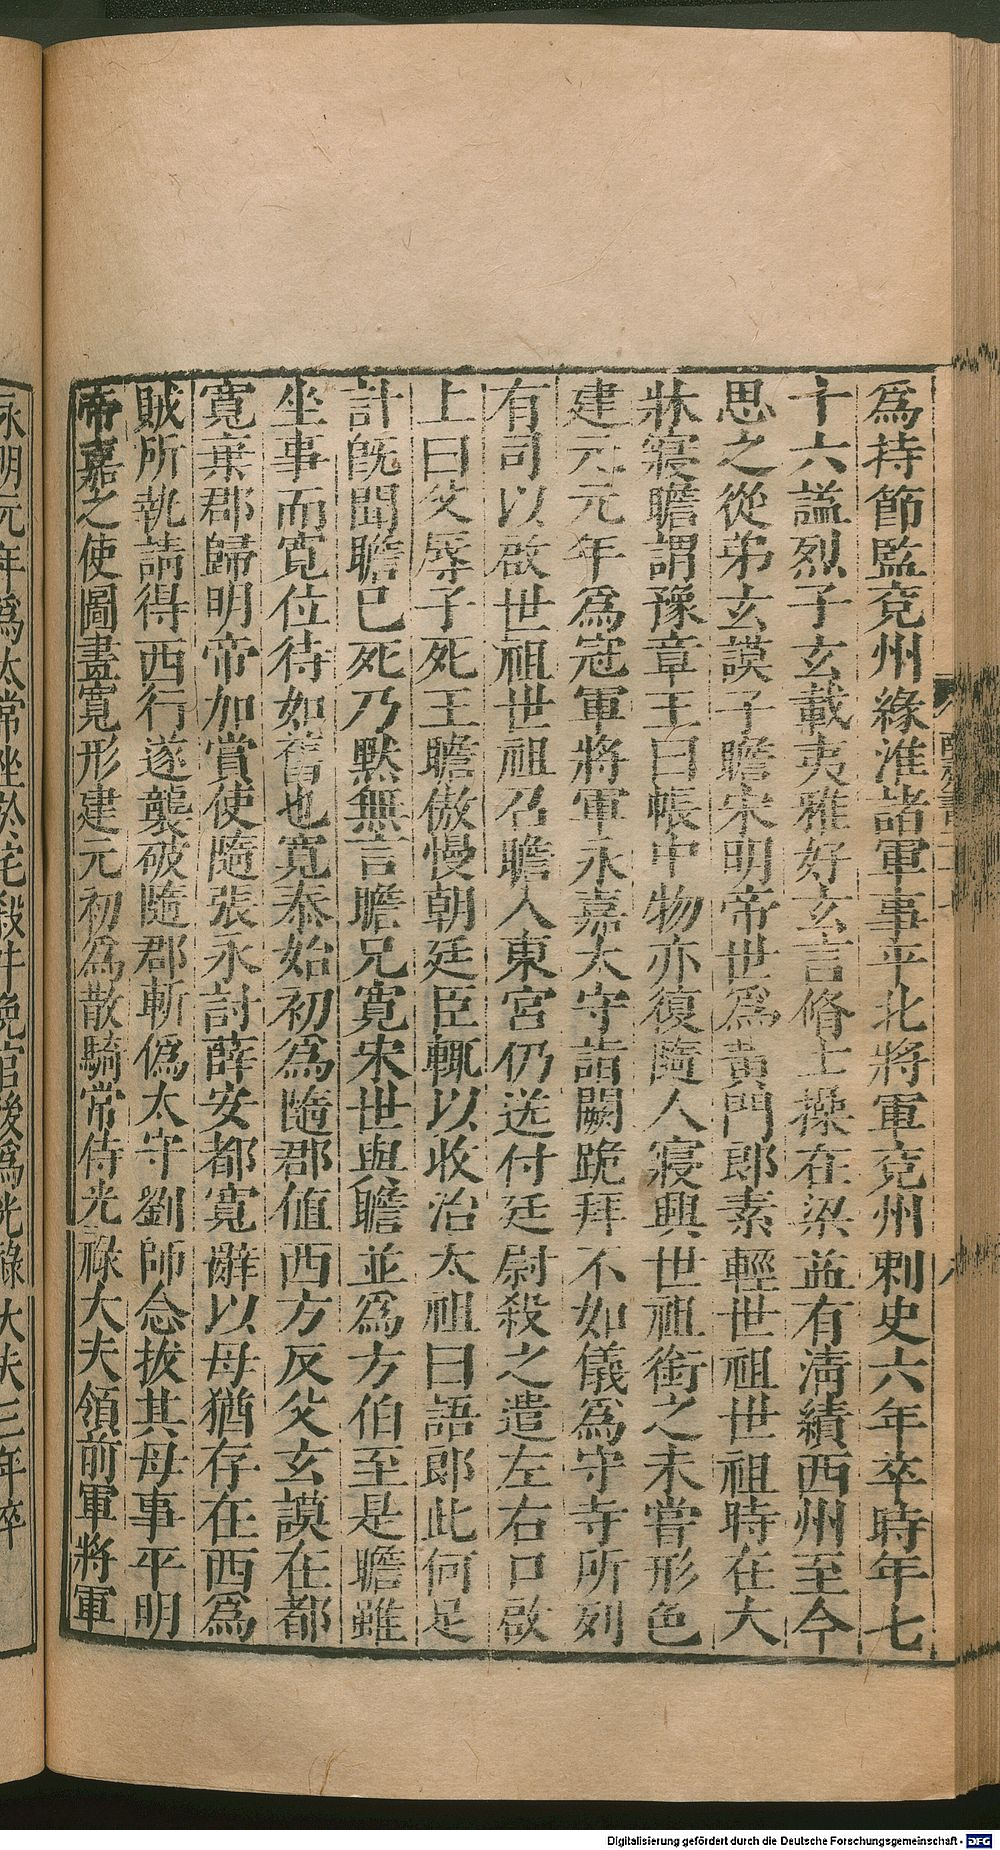 爲持節監兗州緣淮諸軍事平北將軍兗州刺史六年卒時年七
十六謚烈子玄載夷雅好玄言脩士操在梁益有清績西州至今
思之從弟玄謨子瞻宋明帝世爲黃門郎素輕世祖世祖時在大
牀寢瞻謂豫章王曰帳中物亦復隨人寢興世祖銜之未嘗形色
建元元年爲冠軍將軍永嘉太守詣闕跪拜不如儀爲守寺所列
有司以啟世祖世祖召瞻入東宮仍送付廷尉殺之遣左右口啟
上曰父辱子死王瞻傲慢朝廷臣輒以收治太祖曰語郎此何足
計旣聞瞻已死乃默無言瞻兄寬宋世與瞻並爲方伯至是瞻雖
坐事而寬位待如舊也寬泰始初爲隨郡值西方反父玄謨在都
寬棄郡歸明帝加賞使隨張永討薛安都寬辭以母猶存在西爲
賊所執請得西行遂襲破隨郡斬僞太守劉師念拔其母事平明
帝嘉之使圖畫寬形建元初爲散騎常侍光祿大夫領前軍將軍
永明元年爲太常坐於宅殺牛免官後爲光祿大夫三年卒
Digitalisierung gefördert durch die Deutsche Forschungsgemeinschaft - DFG